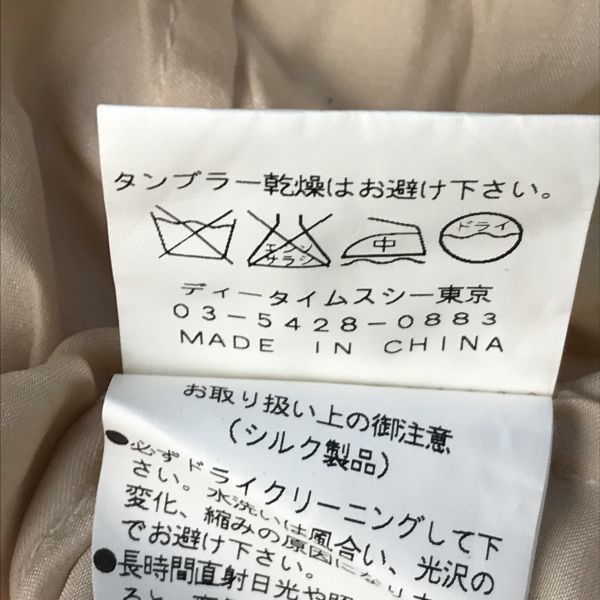 タンブラー乾燥はお避け下さい。
エンソ
サラシ
中
ドライ
ディータイムスシー東京
03-5428-0883
MADE IN CHINA
お取り扱い上の御注意
(シルク製品)
●必ずドライクリーニングして下
さい。水洗いは風合い、光沢の
変化、縮みの原因になりま
でお避け下さい。
●長時間直射日光や照
ると、変